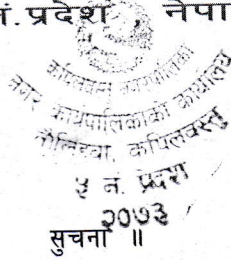 नं. प्रदेश , नेपा
कपिलवस्तु नगरपालिका
नगर कार्यपालिकाको कार्यालय
तौलिहवा, कपिलवस्तु
५ नं. प्रदेश
२०७३
सुचना ॥